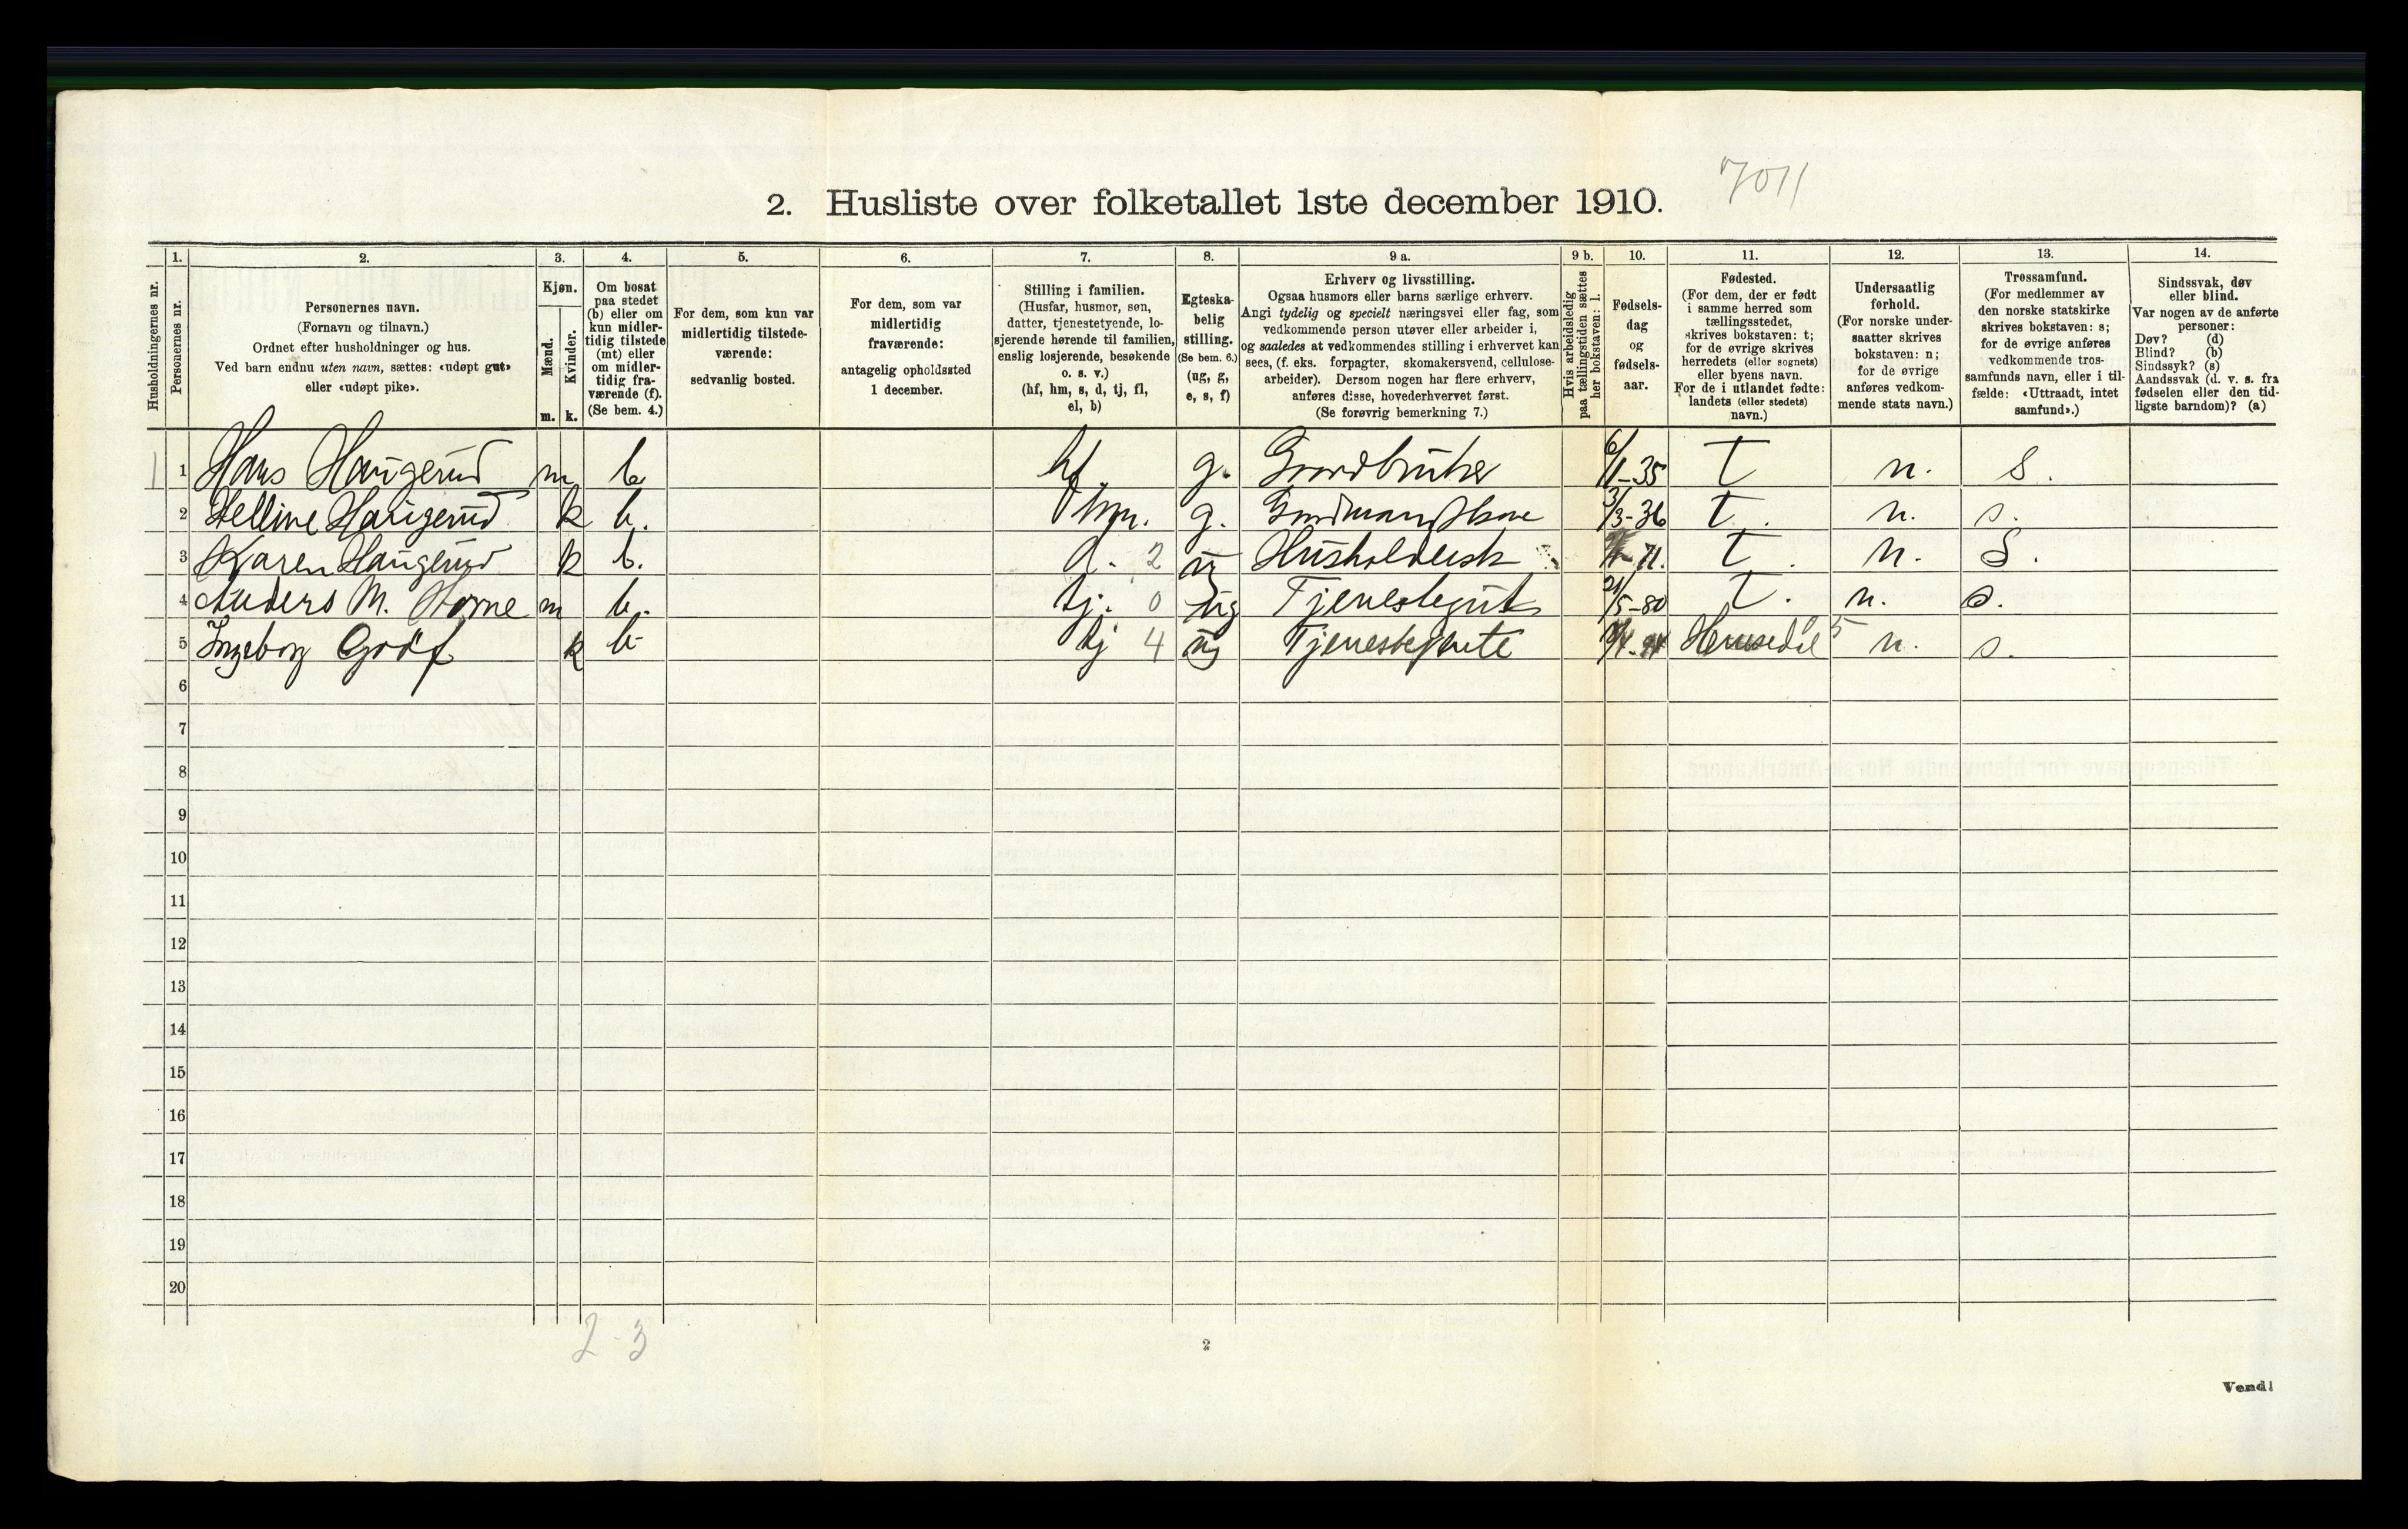 7011
2. Husliste over folketallet 1ste december 1910.
1. 2. 3. 4. 5. 6. 7. 8. 9 a. 9 b. 10. 11. 12. 13. 14.
Husholdningernes nr.
Personernes nr.
Personernes navn.
(Fornavn og tilnavn.)
Ordnet efter husholdninger og hus.
Ved barn endnu uten navn, sættes: «udøpt gut»
eller «udøpt pike».
Kjøn.
Mænd.
Kvinder.
m. k.
Om bosat
paa stedet
(b) eller om
kun midler-
tidig tilstede
(mt) eller
om midler-
tidig fra-
værende (f).
(Se bem. 4.)
For dem, som kun var
midlertidig tilstede-
værende:
sedvanlig bosted.
For dem, som var
midlertidig
fraværende:
antagelig opholdssted
1 december.
Stilling i familien.
(Husfar, husmor, søn,
datter, tjenestetyende, lo-
sjerende hørende til familien,
enslig losjerende, besøkende
o. s. v.)
(hf, hm, s, d, tj, fl,
el, b)
Egteska-
belig
stilling.
(Se bem. 6.)
(ug, g,
e, s, f)
Erhverv og livsstilling.
Ogsaa husmors eller barns særlige erhverv.
Angi tydelig og specielt næringsvei eller fag, som
vedkommende person utøver eller arbeider i,
og saaledes at vedkommendes stilling i erhvervet kan
sees, (f. eks. forpagter, skomakersvend, cellulose-
arbeider). Dersom nogen har flere erhverv,
anføres disse, hovederhvervet først.
(Se forøvrig bemerkning 7.)
Hvis arbeidsledig
paa tællingstiden sættes
her bokstaven: l.
Fødsels-
dag
og
fødsels-
aar.
Fødested.
(For dem, der er født
i samme herred som
tællingsstedet,
skrives bokstaven: t;
for de øvrige skrives
herredets (eller sognets)
eller byens navn.
For de i utlandet fødte:
landets (eller stedets)
navn.)
Undersaatlig
forhold.
(For norske under-
saatter skrives
bokstaven: n;
for de øvrige
anføres vedkom-
mende stats navn.)
Trossamfund.
(For medlemmer av
den norske statskirke
skrives bokstaven: s;
for de øvrige anføres
vedkommende tros-
samfunds navn, eller i til-
fælde: «Uttraadt, intet
samfund».)
Sindssvak, døv
eller blind.
Var nogen av de anførte
personer:
Døv? (d)
Blind? (b)
Sindssyk? (s)
Aandssvak (d. v. s. fra
fødselen eller den tid-
ligste barndom)? (a)
1 1 Hans Haugerud m b hf. g. Gardbruker 6/1-35 t n. s.
2 Helline Haugerud k b. hm. g. 3/3-36 t. n. s.
3 Karen Haugerud k b. d. 2 ug Husholdersk 71. t. n. S.
4 Anders M. m b. tj. 0 ug Tjenestegut 21/5-80 t. n. s.
5 Ingeborg Gröf k b tj 4 ug Tjenestejente Hemsedal 5 n. s.
6
7
8
9
10
11
12
13
14
15
16
17
18
19
20
2-3
2
Vend!